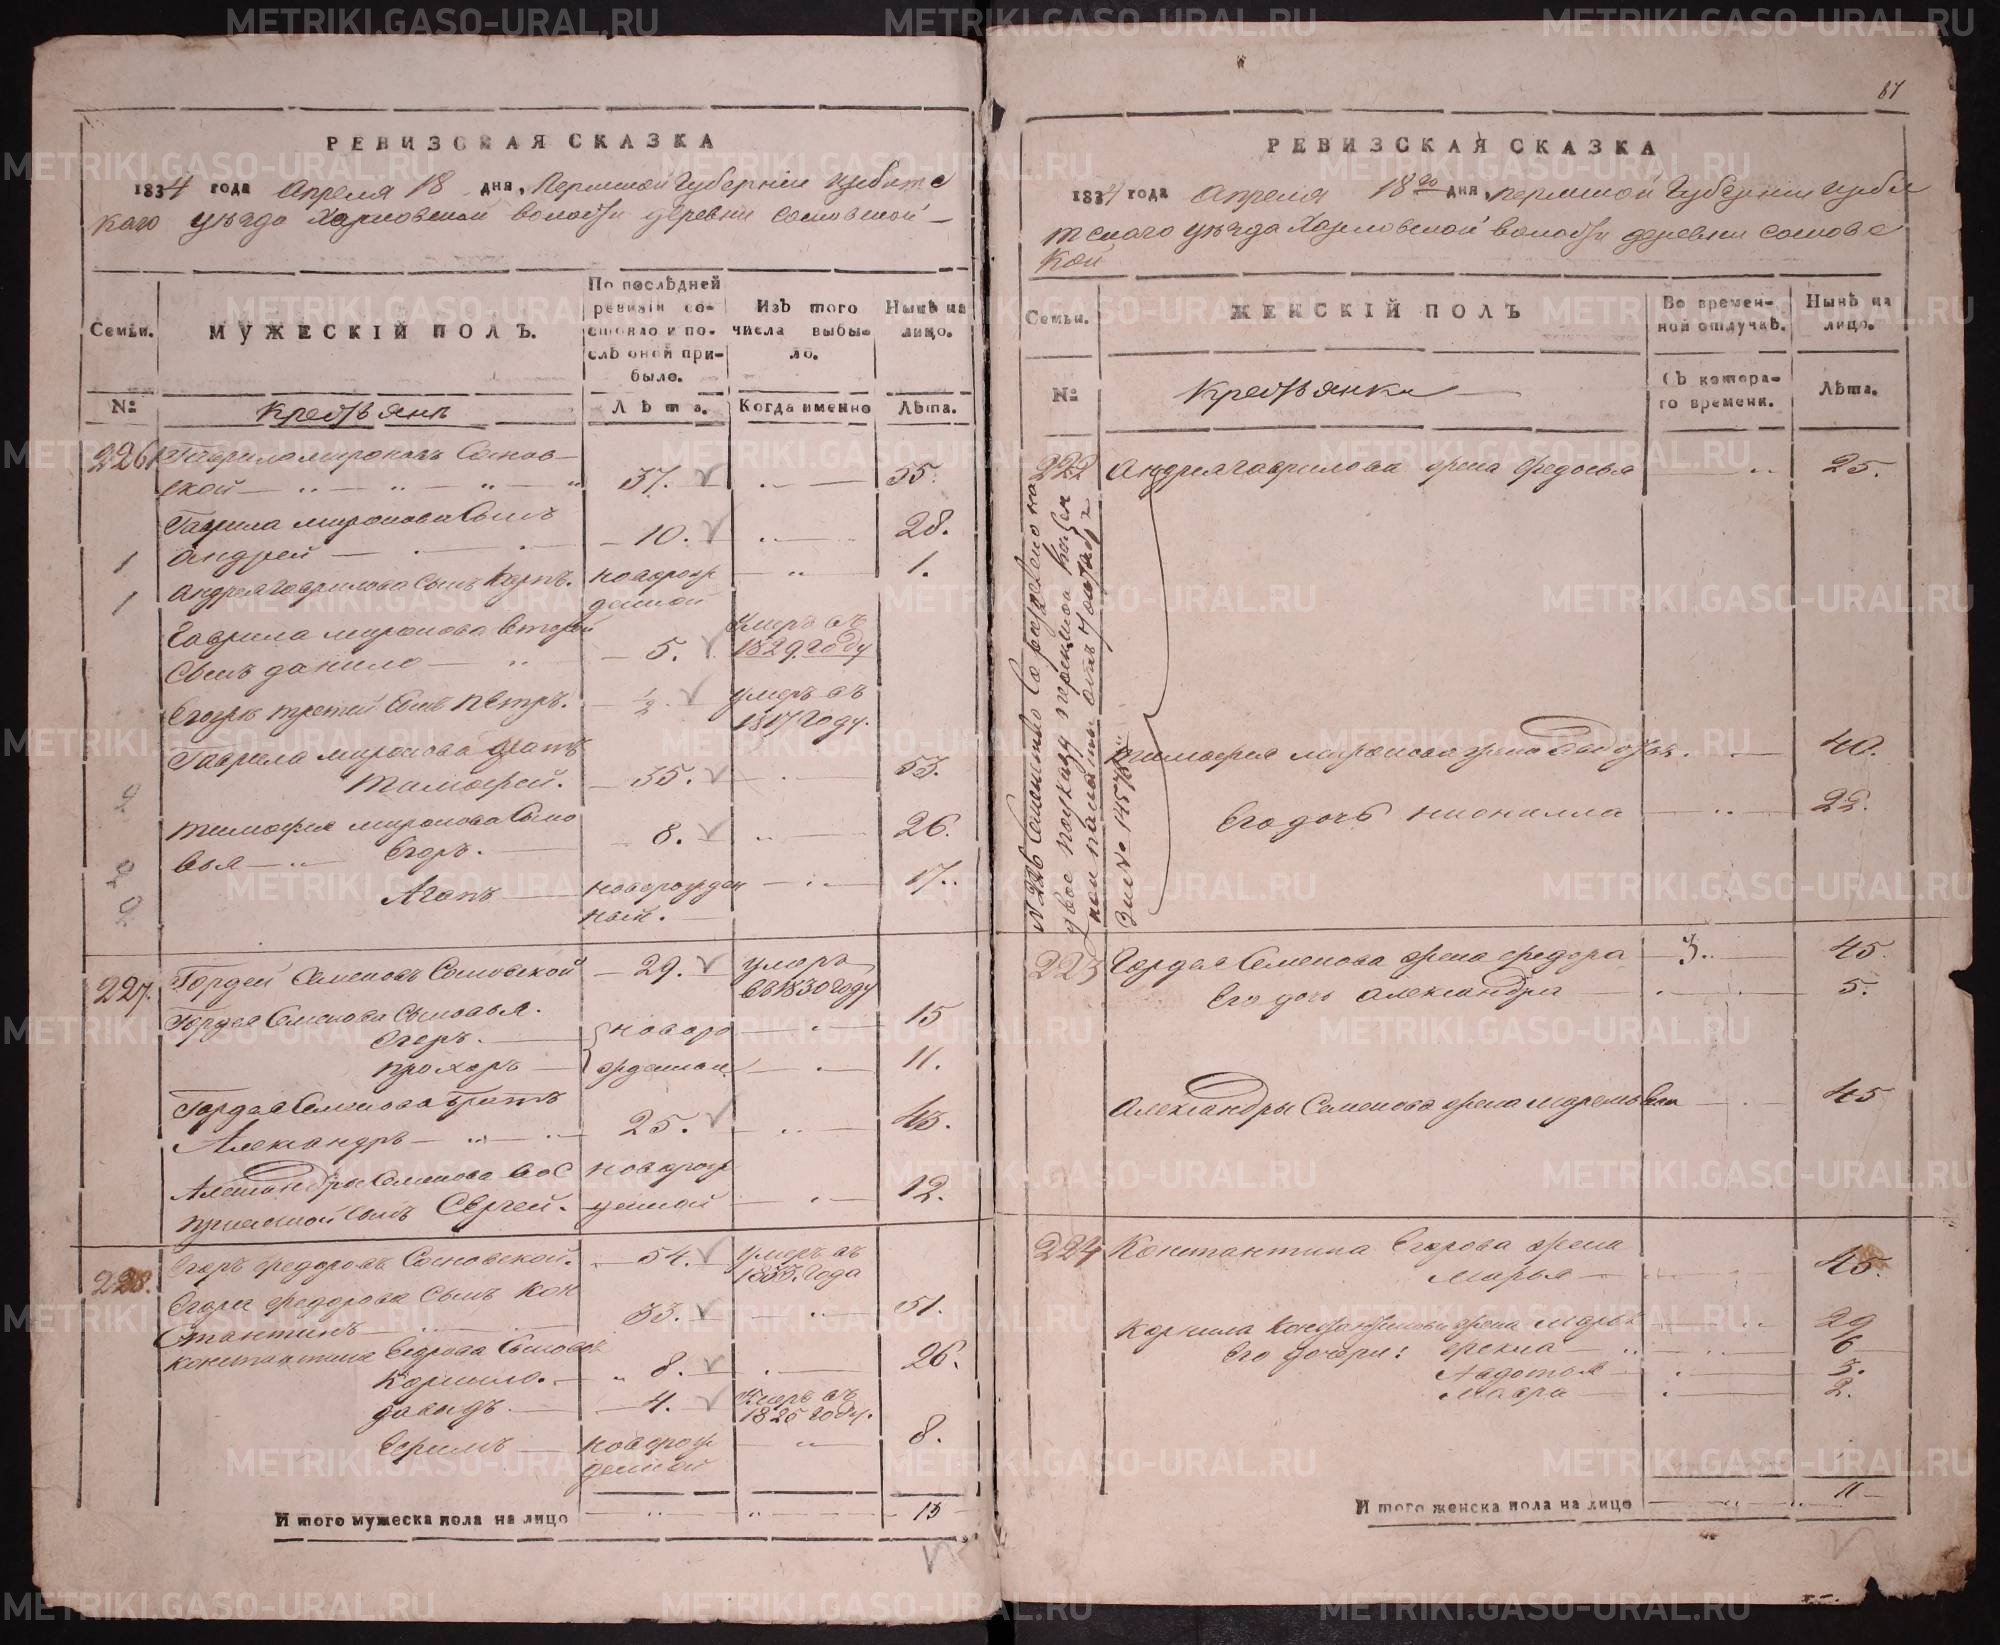 РЕВИЗСКАЯ СКАЗКА
1834 года Апреля 18 дня, Пермской Губернии Ирбитс
каго уѣзда Харловской волости деревни Сосновской
Семьи.
МУЖЕСКІЙ ПОЛЪ.
По послѣдней ревизіи состояло и послѣ оной прибыло.
Изъ того числа выбыло.
Нынѣ на лицо.
№
Крестьяне
Лѣта.
Когда именно
Лѣта.
226 Гаврило Мироновъ Соснов
ской 37. 55.
Гаврила Миронова Сынъ
1 Андрей 10. 28.
1 Андрея Гаврилова Сынъ новорож 1.
денной
Гаврила Миронова второй умеръ въ
Сынъ данило 5. 1829. году
Егоже третей Сынъ Петръ. 1/2 умеръ въ
1817 году.
Гаврила Миронова братъ
Тимофей. 35. 53.
Тимофея Миронова Сыно
вья Егоръ. 8. 26.
Агапъ новорожден 17.
ный.
227. Гордей Семеновъ Сосновской 29. умеръ
въ 1830 году
Гордея Семенова Сыновья.
Егоръ. новоро 15
прохоръ жденной 11.
Гордея Семенова братъ
Александръ 25. 43.
Александра Семенова Вос новорож
принятой Сынъ Сергей. денной 12.
228. Егоръ Федоровъ Сосновской. 54. умеръ въ
1833. года
Егора Федорова Сынъ Кон
стантинъ 33. 51.
Константина Егорова Сыновья
Корнило. 8. 26.
давидъ. 4. умеръ въ
1825 году.
Ефимъ новорож 8.
денной
Итого мужеска пола на лицо 13
67
РЕВИЗСКАЯ СКАЗКА
1834 года Апреля 18го дня, Пермской Губернии Ирби
тскаго уѣзда Харловской волости деревни Соснове
кой
Семьи.
ЖЕНСКІЙ ПОЛЪ
Во временной отлучкѣ.
Нынѣ на лицо.
№
Крестьянки
Съ котораго времени.
Лѣта.
222 Андрея Гаврилова жена Федосья 25.
№ 226 Семейство разделено на
двое
За № 1457
Тимофея Миронова жена 40.
Его дочь нионилла 22.
223 Гордея Семенова жена Федора 3. 45.
Его дочь Александра 5.
Александры Семенова жена 45
224 Константина Егорова жена
Марья 45.
Корнила Константинова жена Марья 29
Его дочери: Фекла 6
Авдотья 3.
2.
Итого женска пола на лицо 11
METRIKI.GASO-URAL.RU